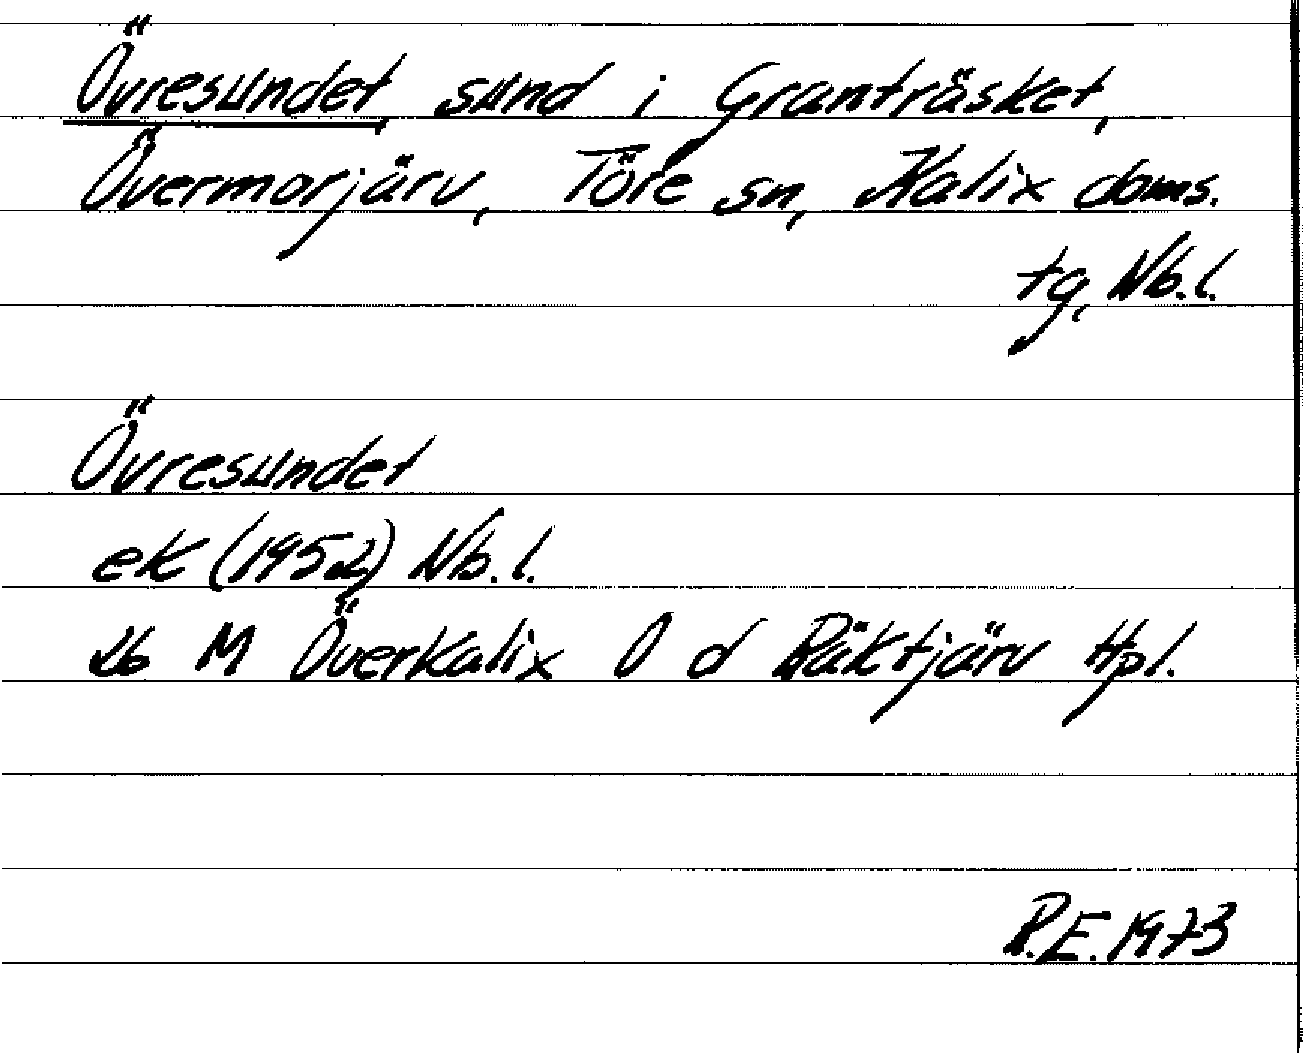 Övresundet, sund i Granträsket,
Övermorjärv, Töre sn, Kalix doms.
tg, Nb.l.
Övresundet
ek (1952) Nb.l.
26 M Överkalix O d Räktjärv Hpl.
R.E. 1973